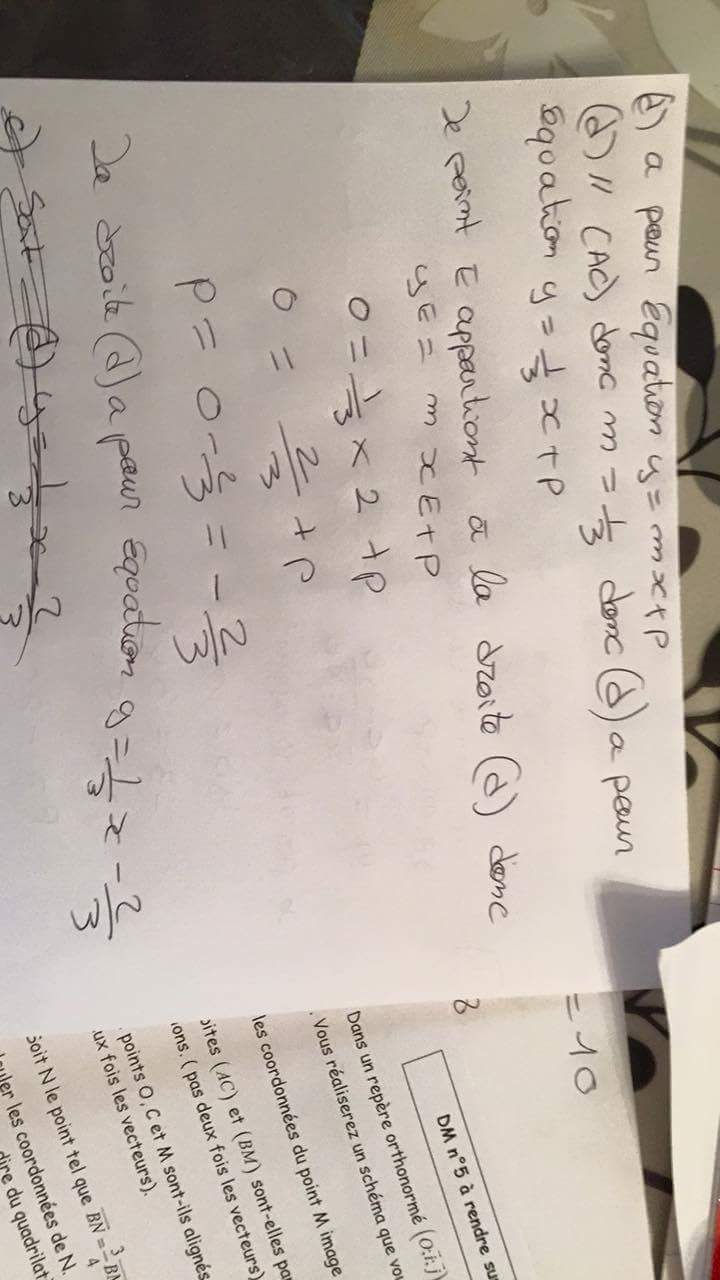 (d) a pour équation y = mx+p
(d) // (AC) donc m = 1/3 donc (d) a pour
équation y = 1/3 x + p
point E appartient à la droite (d) donc
yE = m xE + p
0 = 1/3 × 2 + p
0 = 2/3 + p
p = 0 - 2/3 = - 2/3
droite (d) a pour équation y = 1/3 x - 2/3
c) Soit (d) y = 1/3 x - 2/3
= 10
8
DM n°5 à rendre su
Dans un repère orthonormé (O;i;j)
. Vous réaliserez un schéma que vou
les coordonnées du point M image
oites (AC) et (BM) sont-elles pa
ions. (pas deux fois les vecteurs)
points O, C et M sont-ils alignés
ux fois les vecteurs).
Soit N le point tel que BN = 3/4 BM
uler les coordonnées de N.
dire du quadrilat